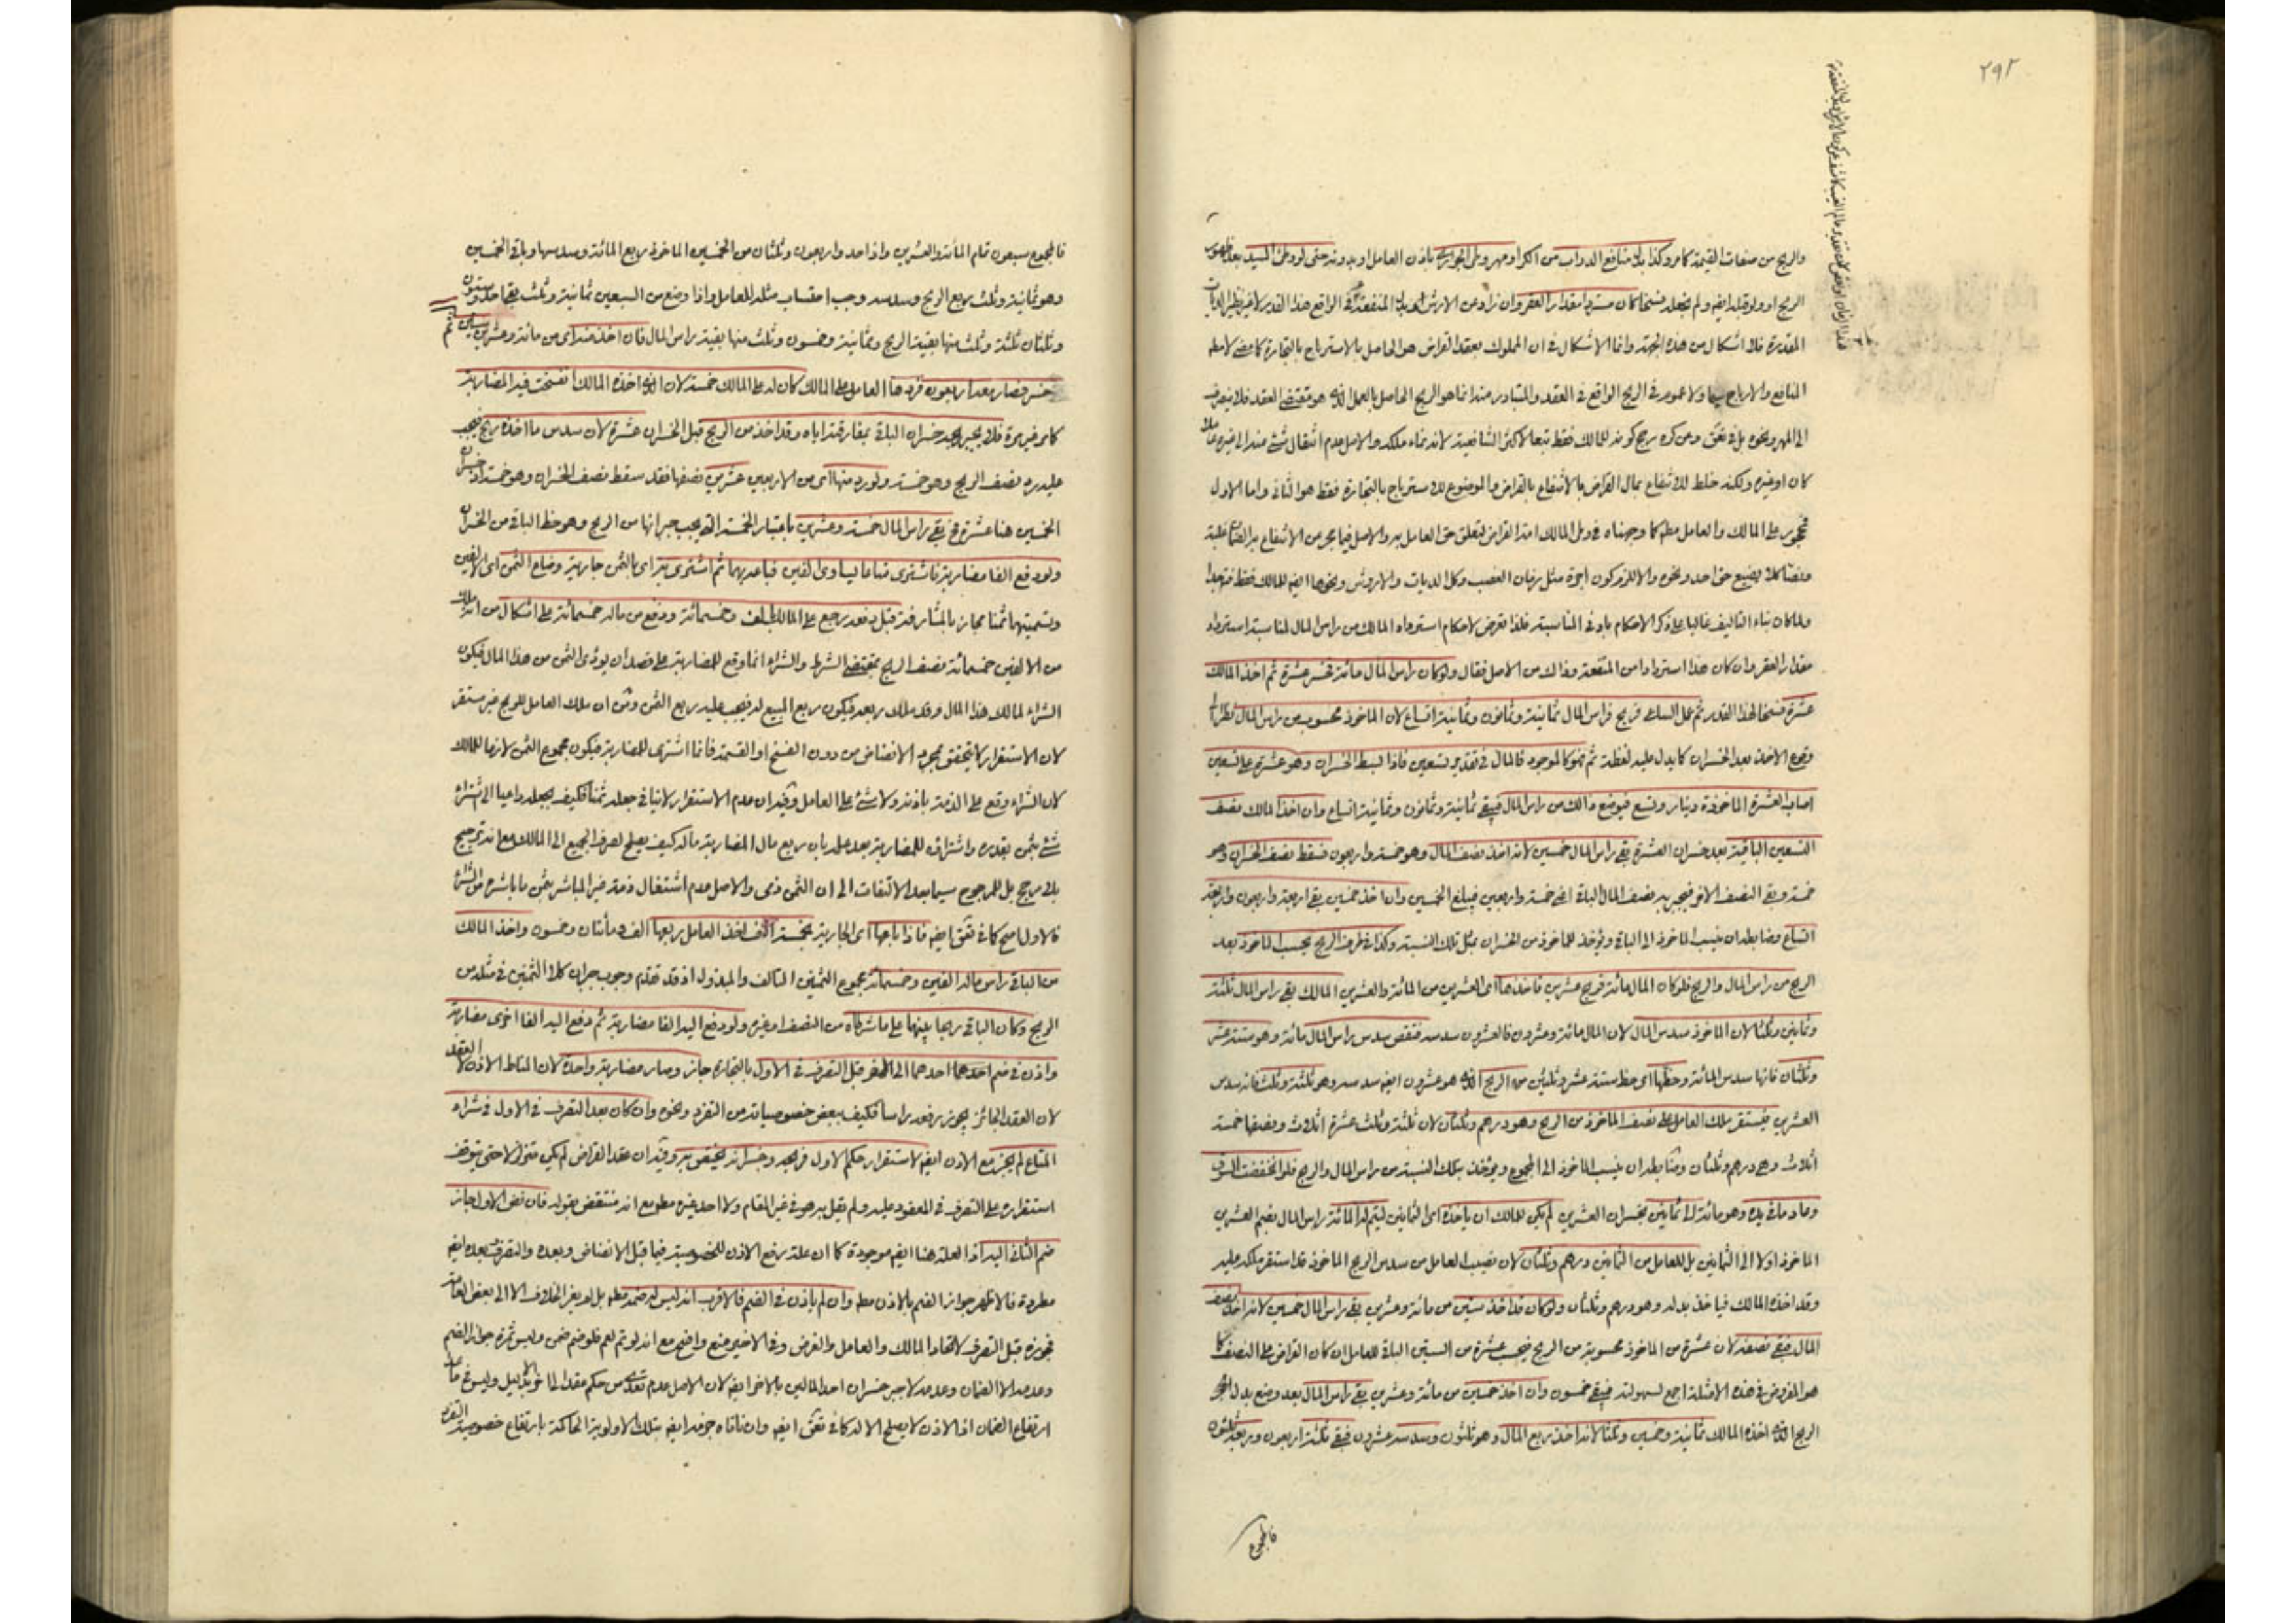 ٢٩٢
والربح من صفات القيمة كما مر وكذا بدل منافع الدواب من الكرا ومهر وطى الجوارى باذن العامل او بدونه حتى لو وطئ السيد بعد ظهور
الربح او ولو قبله ايضا ولم نجعله فسخا كان مستردا مقدار العقر وان زاد عن الارش المنفعة في الواقع هذا القدر لا غير نظير الديات
المقدرة فلا اشكال من هذه الجهة وانما الاشكال في ان المملوك بعقد القراض هو الحاصل بالاسترباح بالتجارة كما مضى لا مطلق
المنافع والارباح سيما ولا عموم في الربح الواقع في العقد والمتبادر منه انما هو الربح الحاصل بالعمل الذي هو مقتضى العقد فلا ينصرف
الى المهر ونحوه بل في وعن كره رجح كونه للمالك فقط تبعا لاكثر الشافعية لانه نماء ملكه والاصل عدم انتقال شئ منه الى غيره عاملا
كان او غيره ولكنه خلط للانتفاع بمال القراض بالانتفاع بالقراض والموضوع للاسترباح بالتجارة فقط هو الثاني واما الاول
فمحجور على المالك والعامل مطلقا كما وجهناه في وطى المالك امة القراض لتعلق حق العامل به والاصل فيما يجرى من الانتفاع به الضمان عليه
ومنعا كلا يضيع حق احد ونحوه واللازم كون اجرة مثل زمان الغصب وكل الديات والاروش ونحوها ايضا للمالك فقط فتجدا
ولما كان بناء التاليف غالبا على ذكر الاحكام بادنى المناسبة فلذا تعرض لاحكام استرداد المالك من راس المال لمناسبة استرداد
مقدار العقر وان كان هذا استردادا من المنفعة وذاك من الاصل فقال ولو كان راس المال مائة فخسر عشرة ثم اخذ المالك
عشرة فسخا لهذا القدر ثم عمل الساعى فربح فراس المال ثمانية وثمانون وثمانية اتساع لان الماخوذ محسوب من راس المال نظرا الى
وقوع الاخذ بعد الخسران كما يدل عليه لفظة ثم فهو كالموجود فالمال في تقدير تسعين فاذا بسط الخسران وهو عشرة على تسعين
اصاب العشرة الماخوذة دينار وتسع فيوضع ذلك من راس المال فيبقى ثمانية وثمانون وثمانية اتساع وان اخذ المالك نصف
التسعين الباقية بعد خسران العشرة بقى راس المال خمسين لانه اخذ نصف المال وهو خمسة واربعون فسقط نصف الخسران وهو
خمسة وبقى النصف الاخر فيجبر به نصف المال الباقى اعنى خمسة واربعين فيبلغ الخمسين وان اخذ خمسين بقى اربعة واربعون واربعة
اتساع وضابطه ان ينسب الماخوذ الى الباقى ويؤخذ للماخوذ من الخسران مثل تلك النسبة وكذا في طرف الربح يحسب الماخوذ بعد
الربح من راس المال والربح فلو كان المال مائة فربح عشرين فاخذها اى العشرين من المائة والعشرين المالك بقى راس المال ثلثة
وثمانين وثلثا لان الماخوذ سدس المال لان المال مائة وعشرون فالعشرون سدسه فتنقص سدس راس المال مائة وهو ستة عشر
وثلثان فانها سدس المائة وحظها اى حظ ستة عشر وثلثين من الربح الذى هو عشرون ايضا سدسه وهو ثلثة وثلث فانه سدس
العشرين فيستقر ملك العامل على نصف الماخوذ من الربح وهو درهم وثلثان لان ثلثة وثلث عشرة اثلاث ونصفها خمسة
اثلاث وهى درهم وثلثان وضابطه ان ينسب الماخوذ الى المجموع ويؤخذ بتلك النسبة من راس المال والربح فلو انخفضت السوق
وعاد ما في يده وهو مائة الى ثمانين بخسران العشرين لم يكن للمالك ان ياخذه اى الثمانين ليتم له المائة راس المال بضم العشرين
الماخوذ اولا الى الثمانين بل للعامل من الثمانين درهم وثلثان لان نصيب العامل من سدس الربح الماخوذ قد استقر ملكه عليه
وقد اخذه المالك فياخذ بدله وهو درهم وثلثان ولو كان قد اخذ ستين من مائة وعشرين بقى راس المال خمسين لانه اخذ نصف
المال فبقى نصفه لان عشرة من الماخوذ محسوبة من الربح فيجب عشرة من الستين الباقى للعامل ان كان القراض على النصف كما
هو المفروض في هذه الامثلة اجمع لسهولته فيبقى خمسون وان اخذ خمسين من مائة وعشرين بقى راس المال بعد وضع بدل
الربح الذى اخذه المالك ثمانية وخمسين وثلثا لانه اخذ ربع المال وهو ثلثون وسدسه عشرون فبقى ثلثة اربعون وربعه ثلثون
فالمجموع
فالمجموع سبعون تمام المائة والعشرين واذا احد واربعون وثلثان من الخمسين الماخوذ ربع المائة وسدسها وباقى الخمسين
وهو ثمانية وثلث ربع الربح وسدسه وجب احتساب مثله للعامل واذا وضع من السبعين ثمانية وثلث بقى احد وستون
وثلثان ثلثة وثلث منها بقية الربح وثمانية وخمسون وثلث منها بقية راس المال فان اخذ منه اى من مائة وعشرين ستين ثم
خسر فصار معه اربعون فردها العامل على المالك كان له على المالك خمسة لان الذى اخذه المالك انفسخت فيه المضاربة
كما مر غير مرة فلا يجبر بربحه خسران الباقى بمفارقته اياه وقد اخذ من الربح قبل الخسران عشرة لان سدس ما اخذه ربح فيجب
عليه رد نصف الربح وهو خمسة ولو رد منها اى من الاربعين عشرين نصفها فقد سقط نصف الخسران وهو خمسة اذ خسران
الخمسين هنا عشرة فح بقى راس المال خمسة وعشرين باعتبار الخمسة التى يجب جبرانها من الربح وهو حظ الباقى من الخسران
ولو دفع الفا مضاربة فاشترى متاعا يساوى الفين فباعه بهما ثم اشترى به اى بالثمن جارية وضاع الثمن اى الالفين
وتسميتهما ثمنا مجاز بالمشارفة قبل دفعه رجع على المالك بالف وخمسمائة ودفع من ماله خمسمائة على اشكال من انه ملك
من الالفين خمسمائة نصف الربح بمقتضى الشرط والشراء انما وقع للمضاربة على قصد ان يؤدى الثمن من هذا المال فيكون
الشراء لمالك هذا المال وقد ملك ربعه فيكون ربع المبيع له فيجب عليه ربع الثمن ومن ان ملك العامل للربح غير مستقر
لان الاستقرار لا يتحقق بمجرد الانضاض من دون الفسخ او القسمة فانما اشترى للمضاربة فيكون مجموع الثمن لازما للمالك
لان الشراء وقع على الذمة باذنه ولا شئ على العامل وفيه ان عدم الاستقرار لا ينافى جعله ثمنا فكيف بجعله داعيا الى شراء
شئ بثمن بقدره واشتراؤه للمضاربة بعد علمه بان ربع مال المضاربة ماله كيف يصلح لصرف الجميع الى المالك مع انه ترجيح
بلا مرجح بل للمرجوح سيما بعد الالتفات الى ان الثمن ذمى والاصل عدم اشتغال ذمة غير المباشر بثمن ما باشره من الشراء
فالاول اصح كما في ايضا فاذا باعها اى الجارية بخمسة الاف اخذ العامل ربعها الف ومأتان وخمسون واخذ المالك
من الباقى راس ماله الفين وخمسمائة مجموع الثمنين التالف والمبذول اذ قد تقدم وجوب جبران كلا الثمنين في مثله من
الربح وكان الباقى ربحا بينهما على ما شرطاه من النصف او غيره ولو دفع اليه الفا مضاربة ثم دفع اليه الفا اخرى مضاربة
واذن في ضم احدهما الى الاخر قبل التصرف في الاول بالتجارة جاز وصار مضاربة واحدة لان المناط الاذن لا العقد
لان العقد الجائز يجوز رفعه راسا فكيف ببعض خصوصياته من التفرد ونحوه وان كان بعد التصرف في الاول في شراء
المتاع لم يجز مع الاذن ايضا لاستقرار حكم الاول فربحه وخسرانه يختص به وفيه ان عقد القراض لم يكن متزلزلا حتى يتوقف
استقراره على التصرف في المعقود عليه ولم يقل به هو في غير المقام ولا احد غيره مطلقا مع انه منتقض بقوله فان نض الاول جاز
ضم الثانى اليه اذ العلة هنا ايضا موجودة كما ان علة رفع الاذن للخصوصية فيما قبل الانضاض وبعده والتصرف بعده ايضا
مطردة فالاظهر جواز الضم بالاذن مطلقا وان لم ياذن في الضم فالاقرب انه ليس له ضمه مطلقا بل لا يعزى الخلاف الا الى بعض العامة
فجوزه قبل التصرف لاتحاد المالك والعامل والغرض وفي الاخير منع واضح مع انه لو تم لعم فلو ضم ضمن وليس ثمرة جواز الضم
وعدمه الا الضمان وعدمه لا جبر خسران احد المالين بالاخر ايضا لان الاصل عدم تعدى كل من حكم عقد الى الاخر الا بدليل وليس في
ارتفاع الضمان اذ الاذن لا يصلح الا له كما في ايضا وان نافاه جزمه ايضا بتلك الاولوية الحاكمة بارتفاع خصوصية التفرد